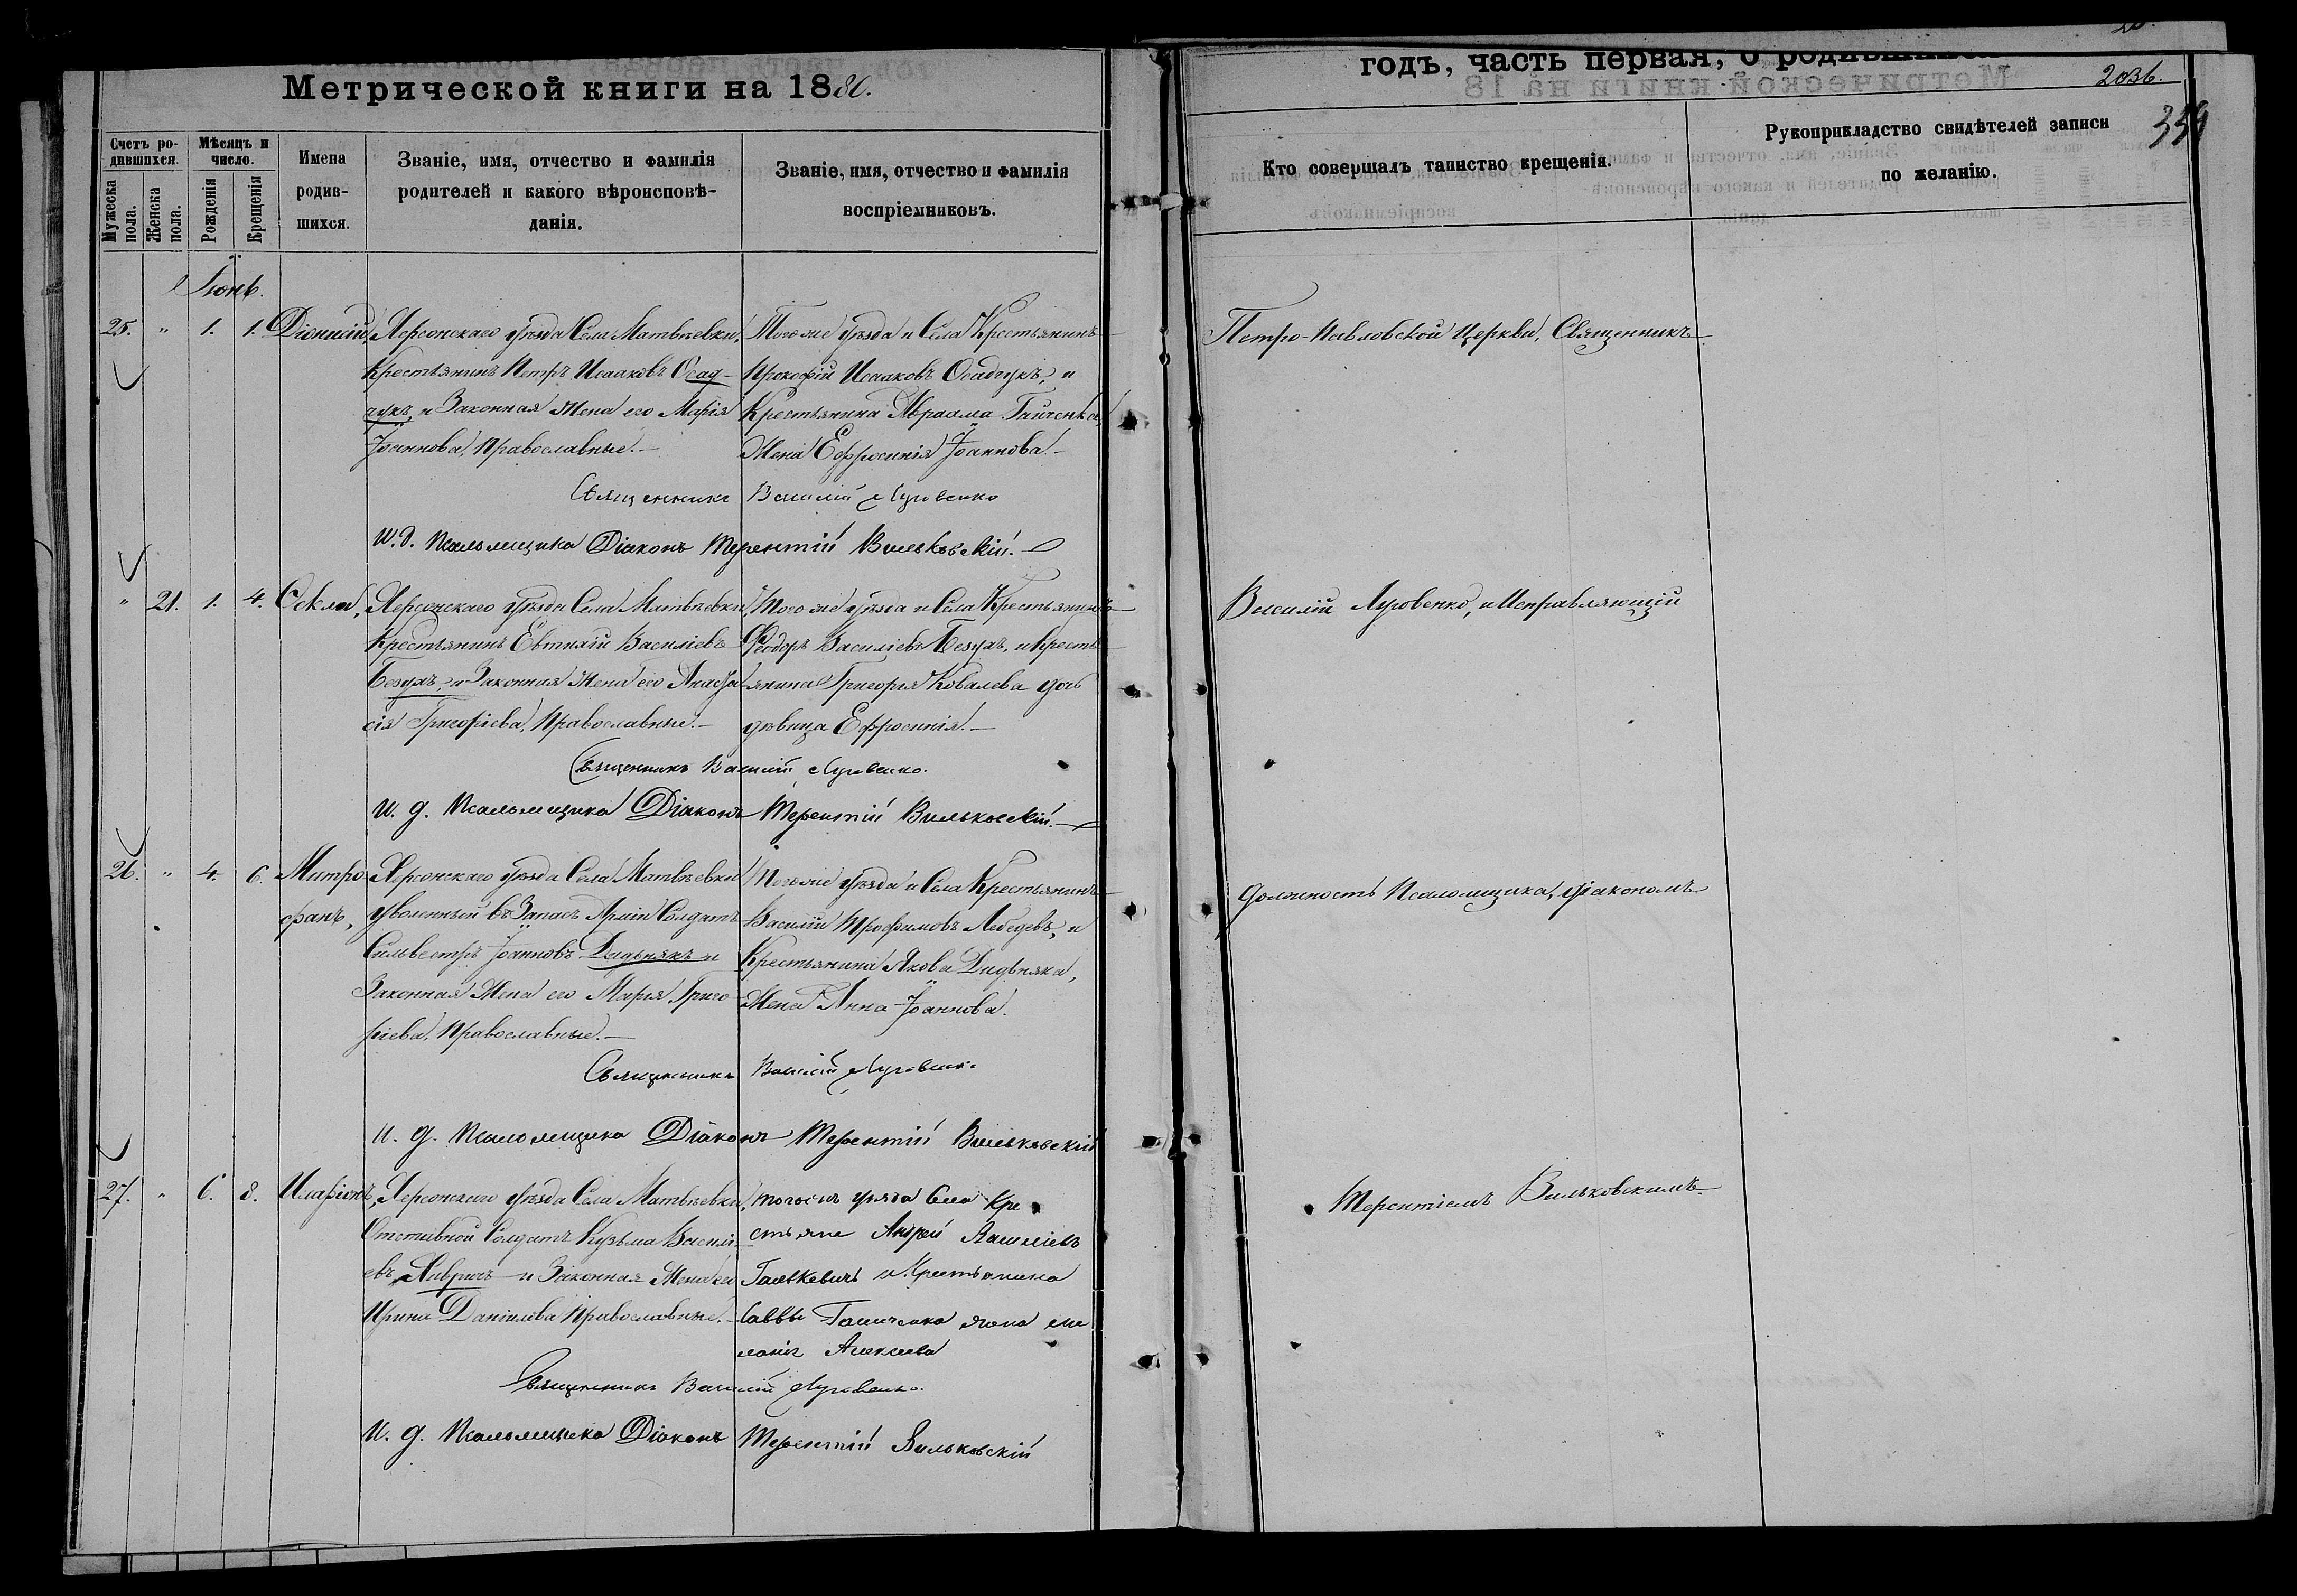 Метрической книги на 1880.
Счетъ родившихся.
Мужеска пола.
Женска пола.
Мѣсяцъ и число.
Рожденія
Крещенія
Имена родившихся.
Званіе, имя, отчество и фамилія
родителей и какого вѣроисповѣ-
данія.
Званіе, имя, отчество и фамилія
воспріемниковъ.
Іюнь.
25. " 1. 1. Діонисій,
Херсонскаго уѣзда Села Матвѣевки,
Крестьянинъ Петръ Исааковъ Осад-
чукъ, и Законная Жена его Марія
Іоаннова, Православные.—
Того же уѣзда и Села Крестьянинъ
Прокофій Исааковъ Осадчукъ, и
Крестьянина Авраама Гайченка,
Жена Ефросинія Іоаннова.—
Священникъ Василій Луговенко
И. д. Псаломщика Діаконъ Терентій Вильковскій.
" 21. 1. 4. Ѳекла,
Херсонскаго уѣзда Села Матвѣевки,
Крестьянинъ Евтихій Василіевъ
Безухъ, и Законная Жена его Анаста-
сія Григоріева, Православные.—
Того же уѣзда и Села Крестьянинъ
Ѳеодоръ Василіевъ Безухъ, и Кресть-
янина Григорія Ковалева дочь
дѣвица Ефросинія.—
Священникъ Василій Луговенко.
И. д. Псаломщика Діаконъ Терентій Вильковскій.—
26. " 4. 6. Митро-
фанъ,
Херсонскаго уѣзда Села Матвѣевки
Уволенный въ Запасъ Арміи Солдатъ
Сильвестръ Іоанновъ Дидьнякъ и
Законная Жена его Марія Григо-
ріева, Православные.—
Того же уѣзда и Села Крестьянинъ
Василій Трофимовъ Лебедевъ, и
Крестьянина Якова Дидьняка,
Жена Анна Іоаннова.
Священникъ Василій Луговенко
И. д. Псаломщика Діаконъ Терентій Вильковскій
27. " 6. 8. Иларіонъ,
Херсонскаго уѣзда Села Матвѣевки,
Отставной Солдатъ Кузьма Василі-
евъ и Законная Жена его
Ирина Даніилова Православные.—
Тогоже уѣзда Села Кре
стьяне Андрей Василіевъ
Галькевичъ и Крестьянина
Саввы Гайченка жена Ме
ланія Алексеева
Священникъ Василій Луговенко.
И. д. Псаломщика Діаконъ Терентій Вильковскій
годъ, часть первая, о родившихся
2036.
359
Кто совершалъ таинство крещенія.
Рукоприкладство свидѣтелей записи
по желанію.
Петро-Павловской Церкви, Священникъ
Василій Луговенко, и Исправляющій
должность Псаломщика, Діакономъ
Терентіемъ Вильковскимъ.